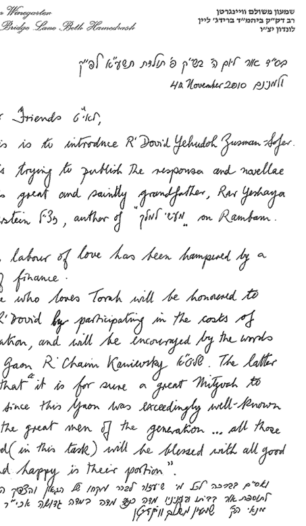 Winegarten
שמעון משולם ווינגרטן
Bridge Lane Beth Hamedrash
רב דק"ק ביהמ"ד ברידג' ליין
לונדון יצ"ו
4th November 2010
Friends,
is is to introduce R' Dovid Yehudoh Zusman-Sofer.
s trying to publish the responsa and novellae
s great and saintly grandfather, Rav Yeshaya
stein זצ"ל, author of "מעשי למלך" on Rambam.
labour of love has been hampered by a
f finance.
e who loves Torah will be honoured to
R' Dovid by participating in the costs of
ation, and will be encouraged by the words
Gaon R' Chaim Kanievsky שליט"א. The latter
that "it is for sure a great Mitzvah to
since this Gaon was exceedingly well-known
the great men of the generation ... all those
d (in this task) will be blessed with all good
d happy is their portion".